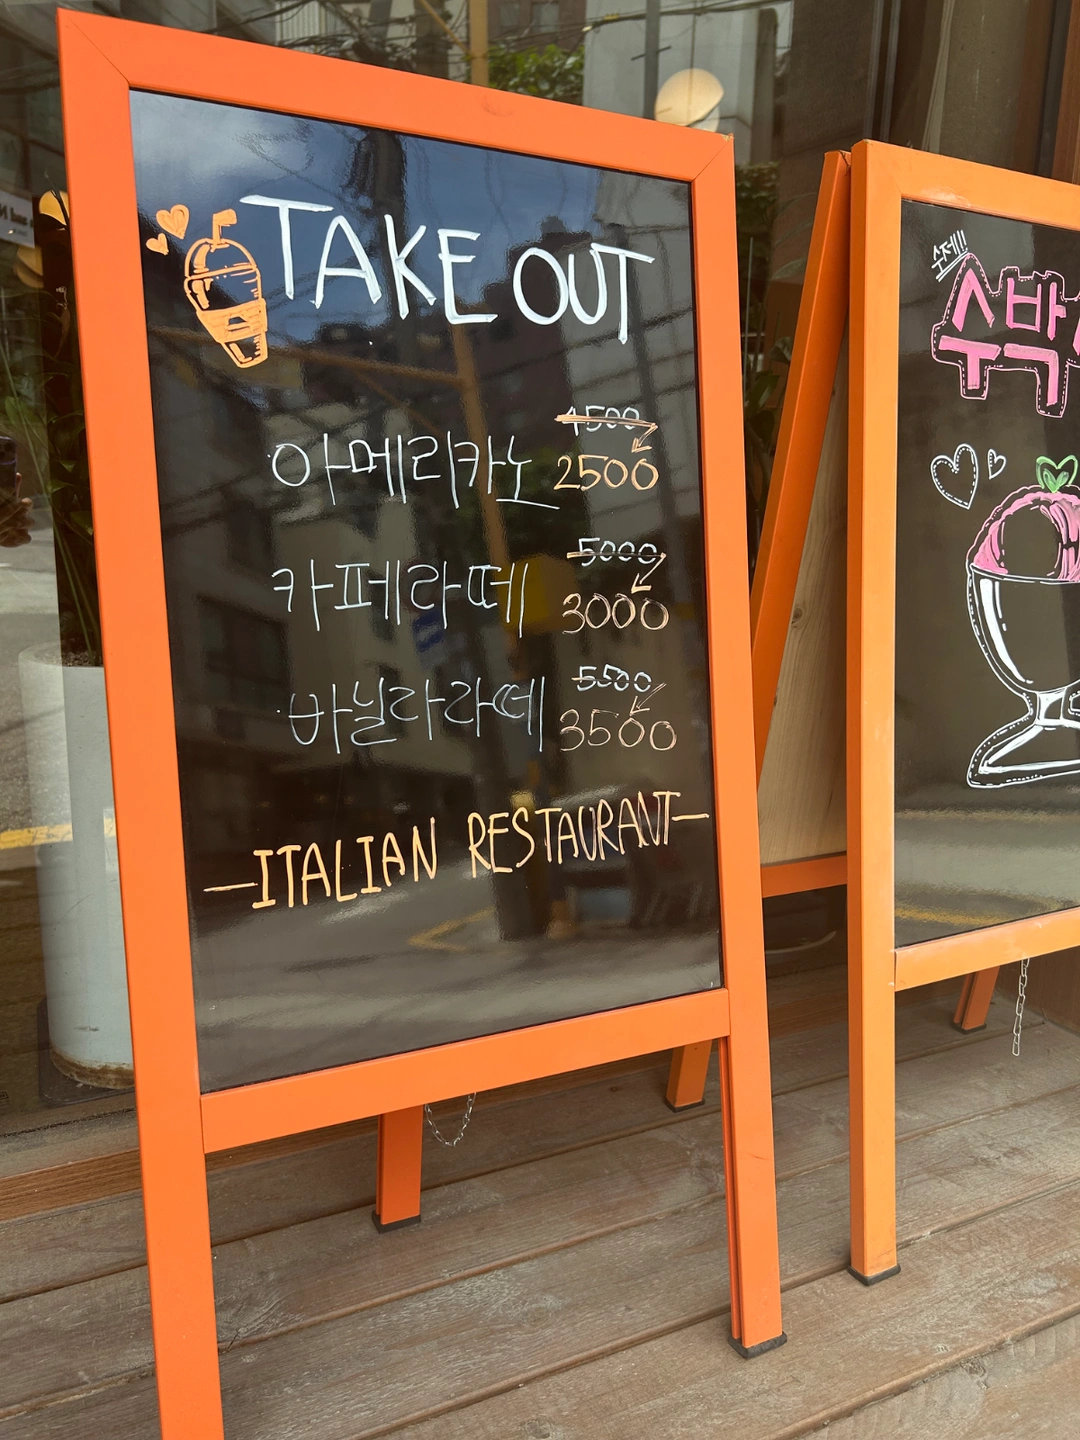 TAKE OUT
4500
아메리카노 2500
5000
카페라떼 3000
5500
바닐라라떼 3500
ITALIAN RESTAURANT
수제!!
수박